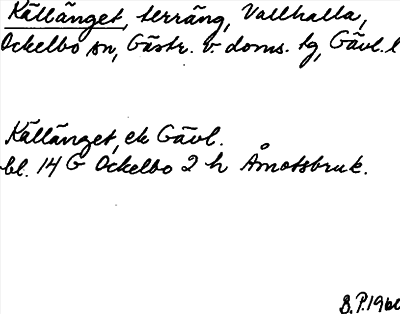 Källänget, terräng, Vallhalla,
Ockelbo sn, Gästr. v. doms. tg, Gävl. l
Källänget, ek Gävl.
bl. 14 G Ockelbo 2 h Åmotsbruk.
B.P. 1960